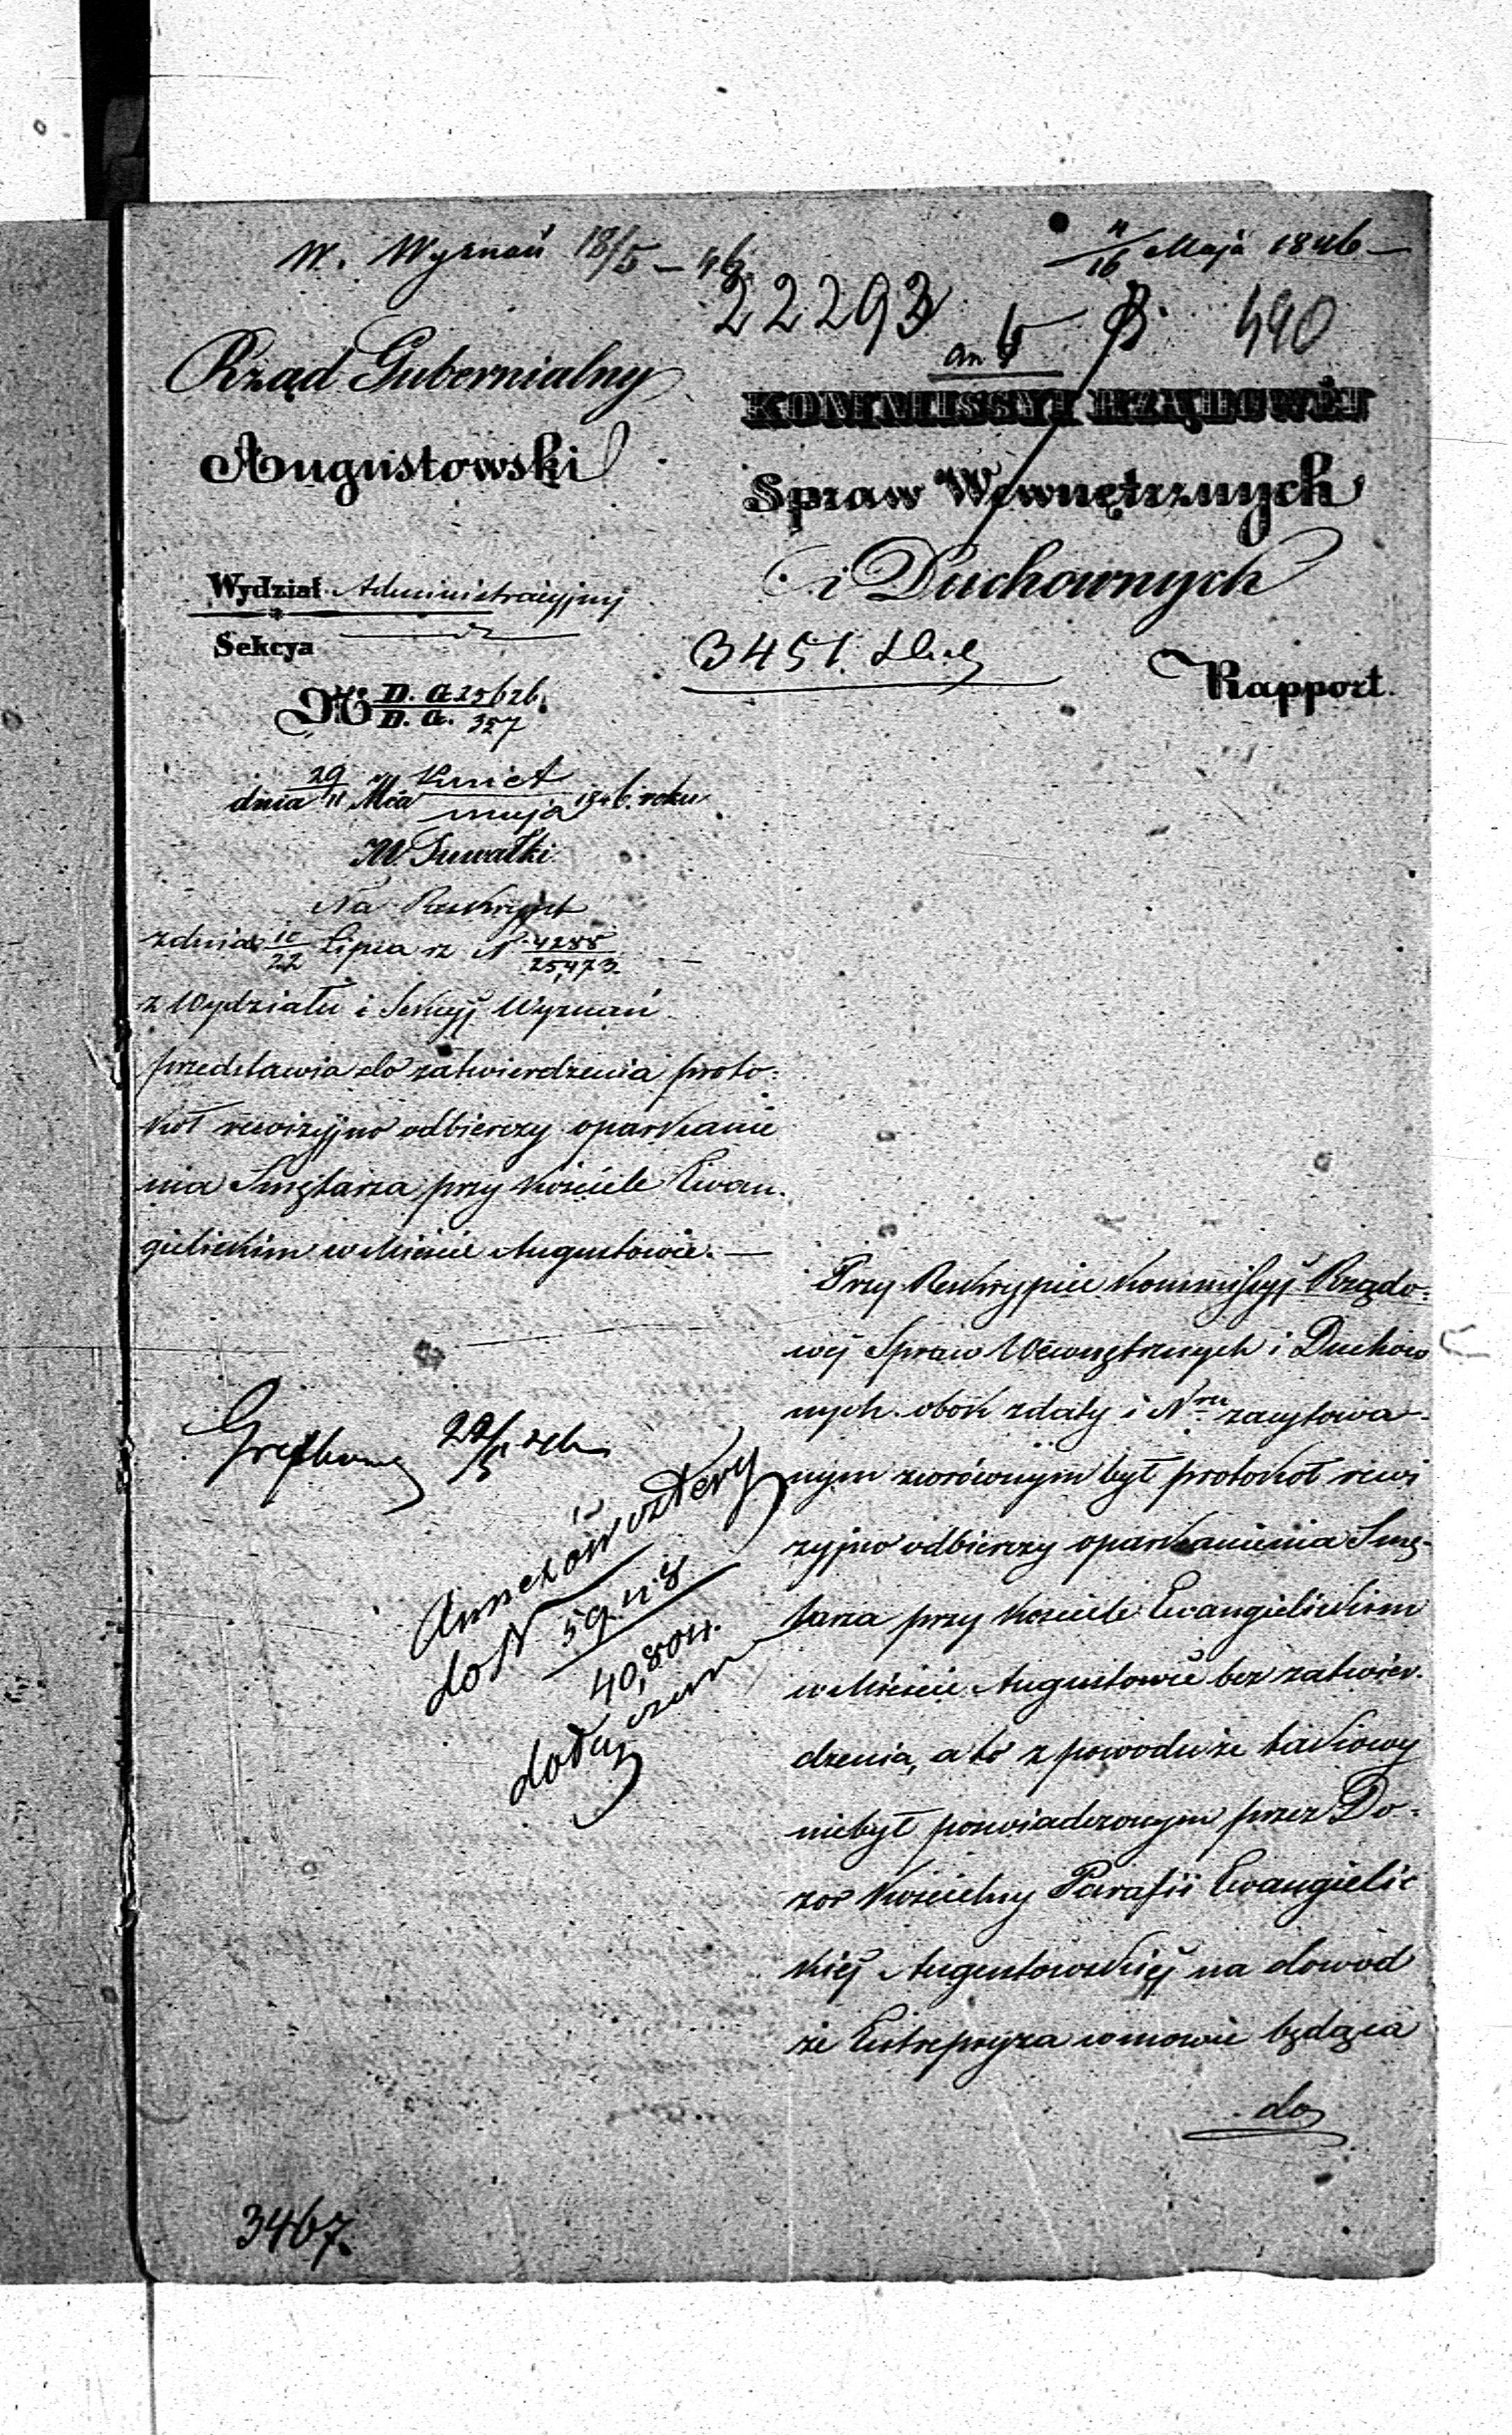 W. Wyznań 18/5 – 46
4/16 Maja 1846 –
22293
an 4
490
Rząd Gubernialny
Augustowski
KOMMISSYI RZĄDOWÉJ
Spraw Wewnętrznych
i Duchownych
Wydział Administracyjny
Sekcya
3451.
Rapport.
N D. A 25626.
D. A. 357
dnia 29/11 Mca Kwiet/maja 1846. roku
W. Suwałki
Na Reskrypt
z dnia 10/22 Lipca rz N 4288/25,473
z Wydziału i Sekcyj Wyznań
przedstawia do zatwierdzenia proto-
kół rewizyjno odbierczy oparkanie
nia Smętarza przy kościele Ewan-
gielickim w Mieście Augustowie. —
Przy Reskrypcie Kommissyj Rządo-
wéj Spraw Wewnętrznych i Duchow
nych obok z daty i Nru zacytowa-
nym zwrównym był protokół rewi
zyjno odbierczy oparkanienia Smę-
tarza przy Kościele Ewangielickim
w Mieście Augustowie bez zatwier-
dzenia, a to z powodu że takiowy
niebył poświadczonym przez Do-
zór Kościelny Parafii Ewangielic
kiéj Augustowskiéj na dowód
że Entrepryza w mowie będąca
do
22/5
Annexów cztery
do N 5948
40,804.
dołączam
3467.